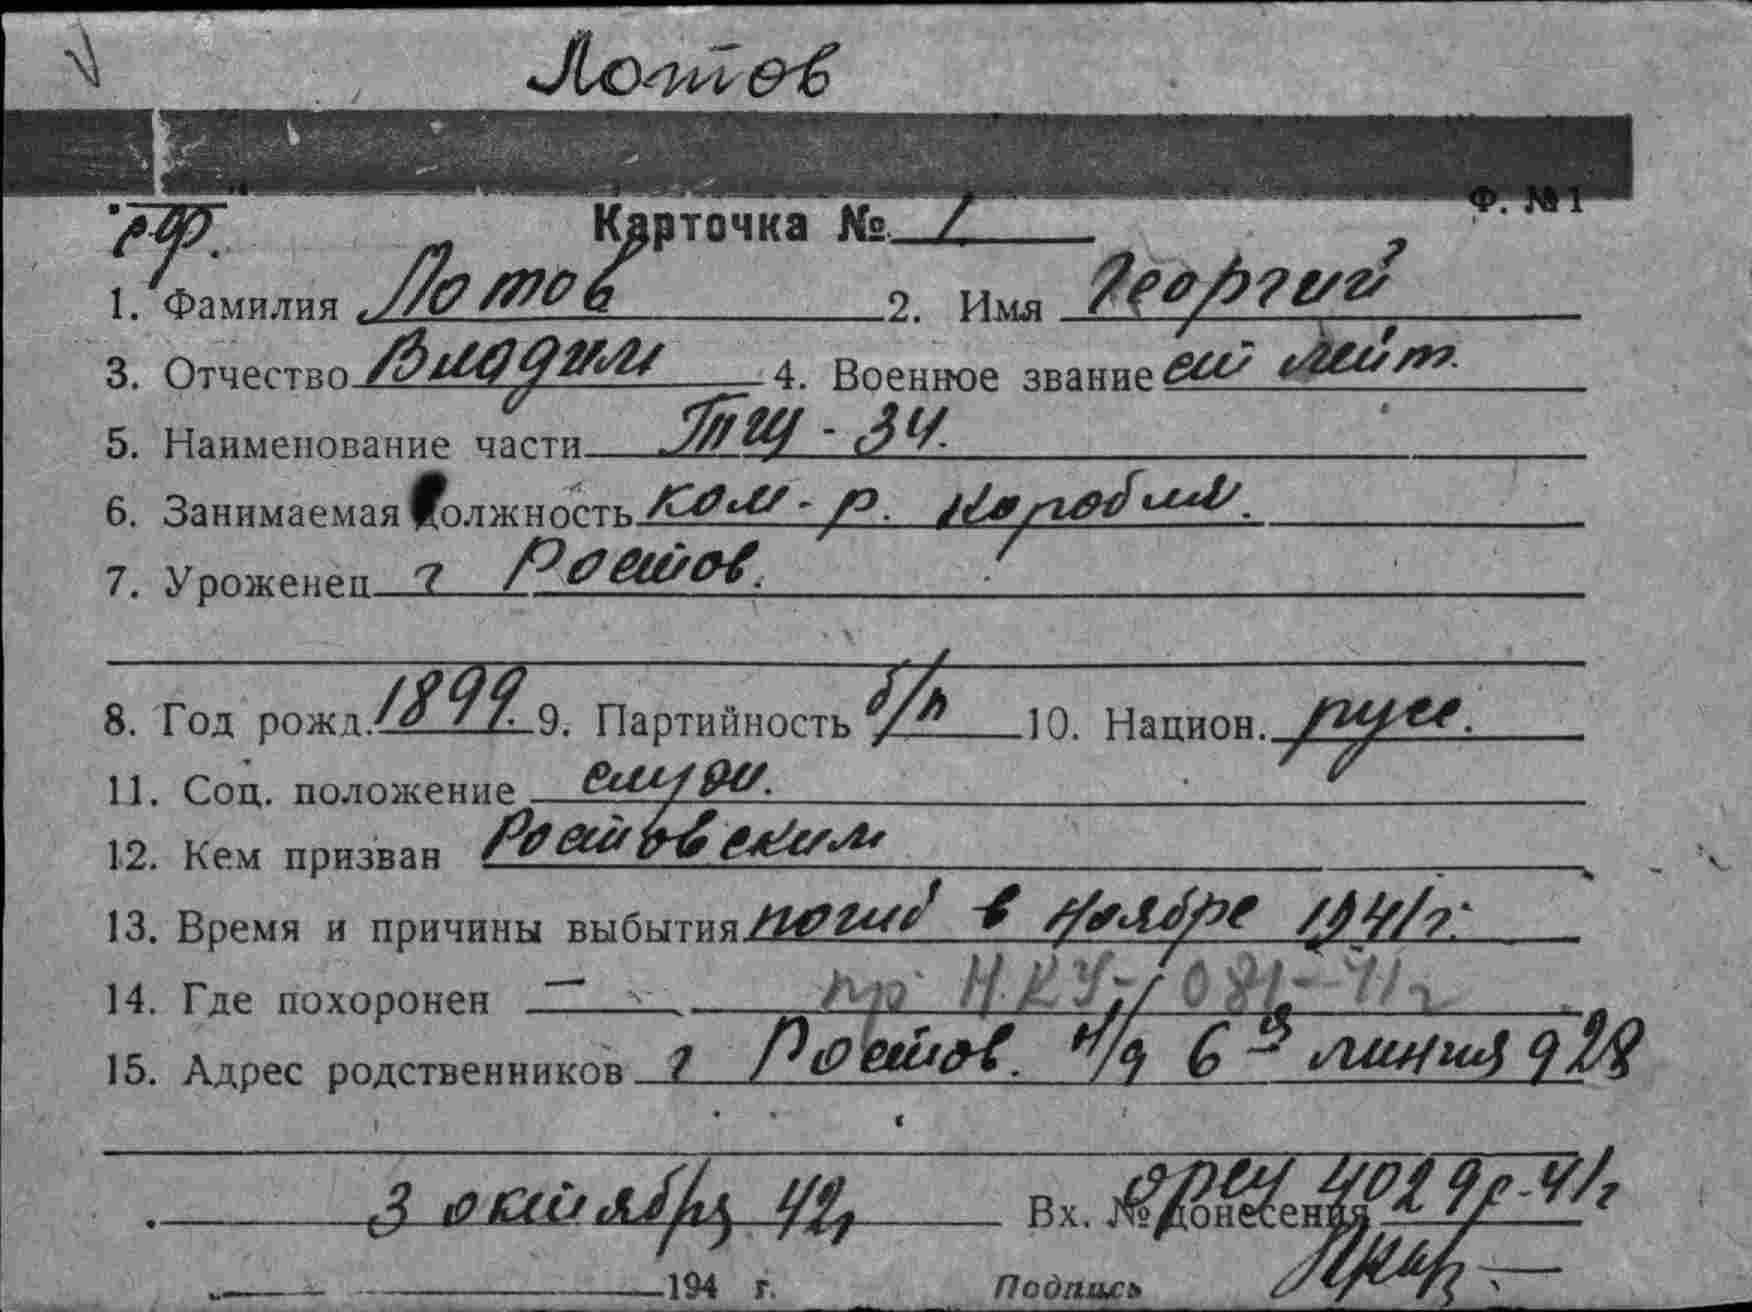 Лотов
Ф. №1
Карточка № 1
1. Фамилия Лотов 2. Имя Георгий
3. Отчество Владим 4. Военное звание ст лейт.
5. Наименование части ТЩ - 34.
6. Занимаемая должность ком-р. корабля.
7. Уроженец г Ростов.
8. Год рожд. 1899. 9. Партийность б/п 10. Национ. русс.
11. Соц. положение служ.
12. Кем призван Ростовским
13. Время и причины выбытия погиб в ноябре 1941 г.
14. Где похоронен — пр НКУ-081-41г
15. Адрес родственников г Ростов. н/д 6я линия д 28
3 октября 42г Вх. № донесения 4029с-41г
194 г. Подпись